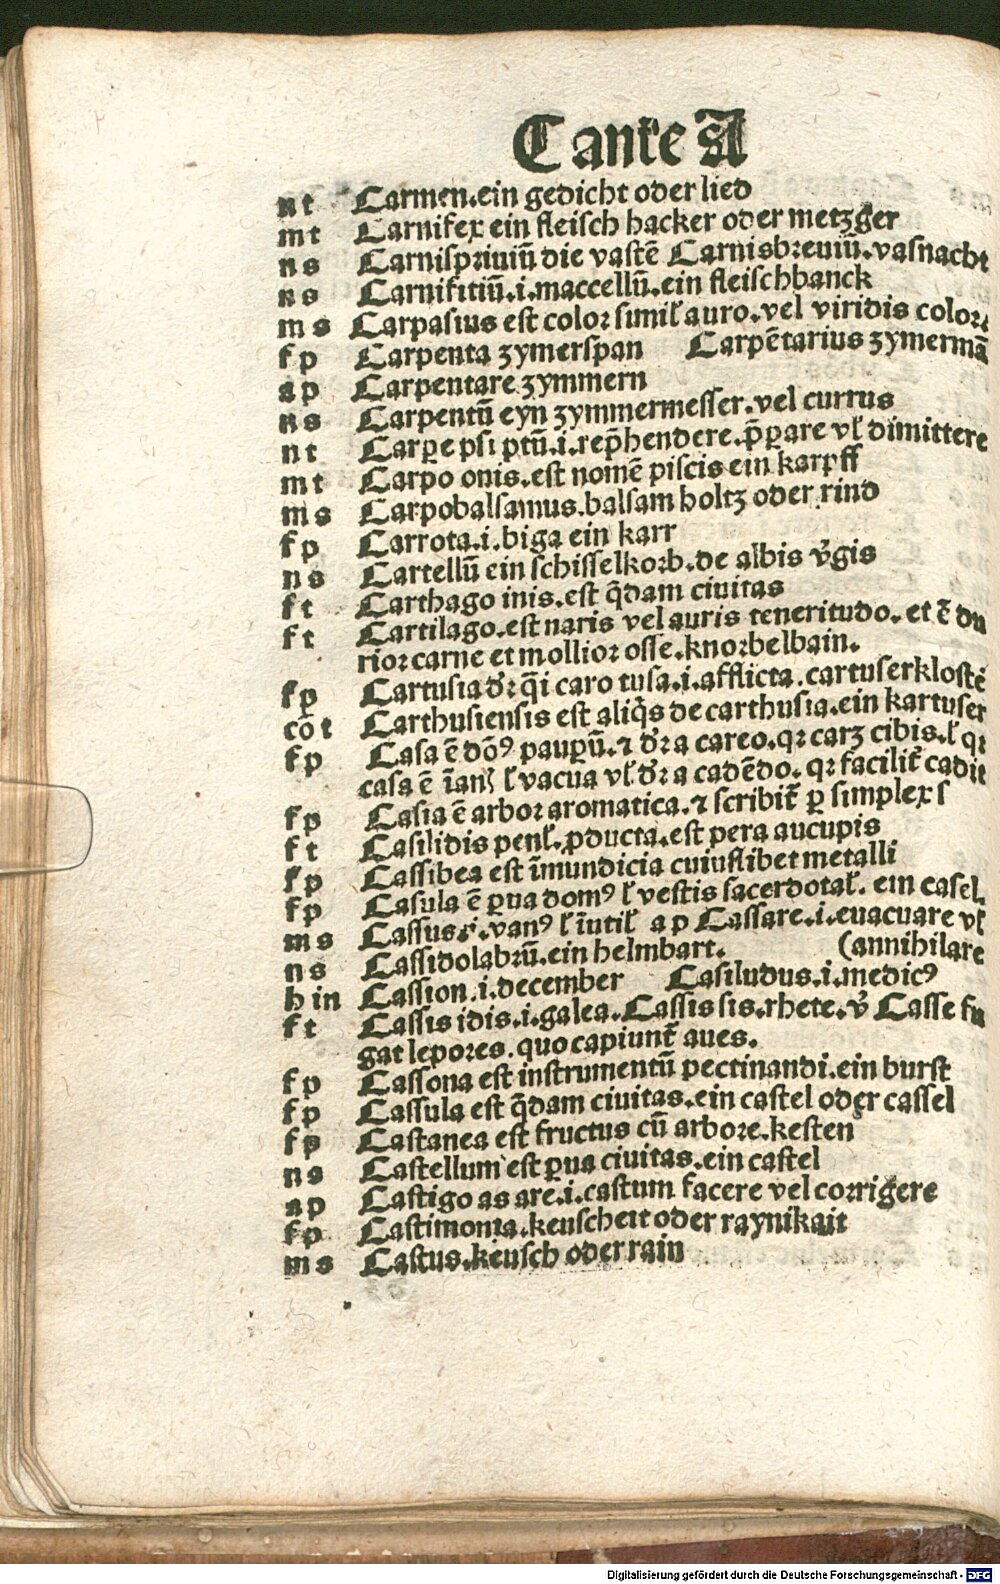 C ante A
nt Carmen.ein gedicht oder lied
mt Carnifex ein fleisch hacker oder metzger
ns Carnispriuiū die vastē Carnisbreuiū.vasnacht
ns Carnifitiū.i.maccellū.ein fleischbanck
ms Carpasius est color simil̄ auro.vel viridis color.
fp Carpenta zymerspan Carpētarius zymermā
ap Carpentare zymmern
ns Carpentū eyn zymmermesser.vel currus
nt Carpe psi ptū.i.rep̄hendere.p̄ꝑare vl̄ dimittere
mt Carpo onis.est nomē piscis ein karpff
ms Carpobalsamus.balsam holtz oder rind
fp Carrota.i.biga ein karr
ns Cartellū ein schisselkorb.de albis v̓gis
ft Carthago inis.est q̄dam ciuitas
ft Cartilago.est naris vel auris teneritudo.et ē du
rior carne et mollior osse.knorbelbain.
fp Cartusia dr̄ q̄i caro tusa.i.afflicta.cartuserklostē
cōt Carthusiensis est aliq̇s de carthusia.ein kartuser
fp Casa ē dōꝰ pauꝑū.⁊ dr̄ a careo.qr carꝫ cibis.l̄ qr
casa ē īanꝭ l̄ vacua vl̄ dr̄ a cadēdo.qr facilit̄ cadit
fp Casia ē arbor aromatica.⁊ scribit̄ ꝑ simplex s
ft Casilidis penl̄.ꝓducta.est pera aucupis
fp Cassibea est īmundicia cuiuslibet metalli
fp Casula ē ꝑua domꝰ l̄ vestis sacerdotal̄. ein casel
ms Cassus.i.vanꝰ l̄ īutil̄ ap Cassare.i.euacuare vl̄
ns Cassidolabrū.ein helmbart. (annihilare
hin Cassion.i.december Casiludus.i.medicꝰ
ft Cassis idis.i.galea.Cassis sis.rhete.v̓ Casse fu
gat lepores.quo capiunt̄ aues.
fp Cassona est instrumentū pectinandi.ein burst
fp Cassula est q̄dam ciuitas.ein castel oder cassel
fp Castanea est fructus cū arbore.kesten
ns Castellum est ꝑua ciuitas.ein castel
ap Castigo as are.i.castum facere vel corrigere
fp Castimonia.keuscheit oder raynikait
ms Castus.keusch oder rain
Digitalisierung gefördert durch die Deutsche Forschungsgemeinschaft - DFG